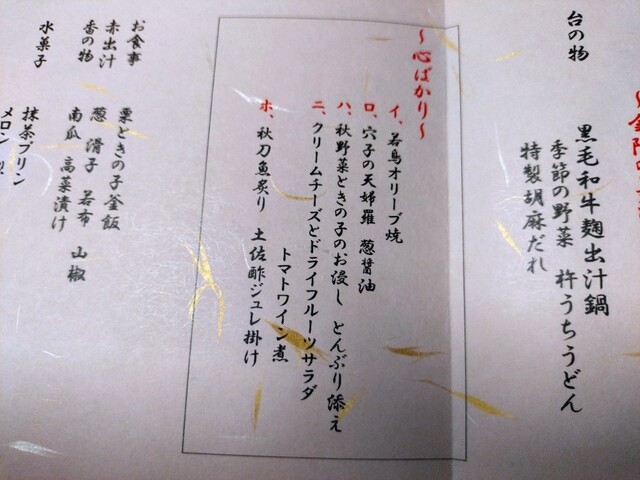 台の物
黒毛和牛麹出汁鍋
季節の野菜 杵うちうどん
特製胡麻だれ
～心ばかり～
イ、若鳥オリーブ焼
ロ、穴子の天婦羅 葱醤油
ハ、秋野菜ときの子のお浸し とんぶり添え
ニ、クリームチーズとドライフルーツサラダ
トマトワイン煮
ホ、秋刀魚炙り 土佐酢ジュレ掛け
お食事 栗ときの子釜飯
赤出汁 葱 滑子 若布 山椒
香の物 南瓜 高菜漬け
水菓子 抹茶プリン
メロン